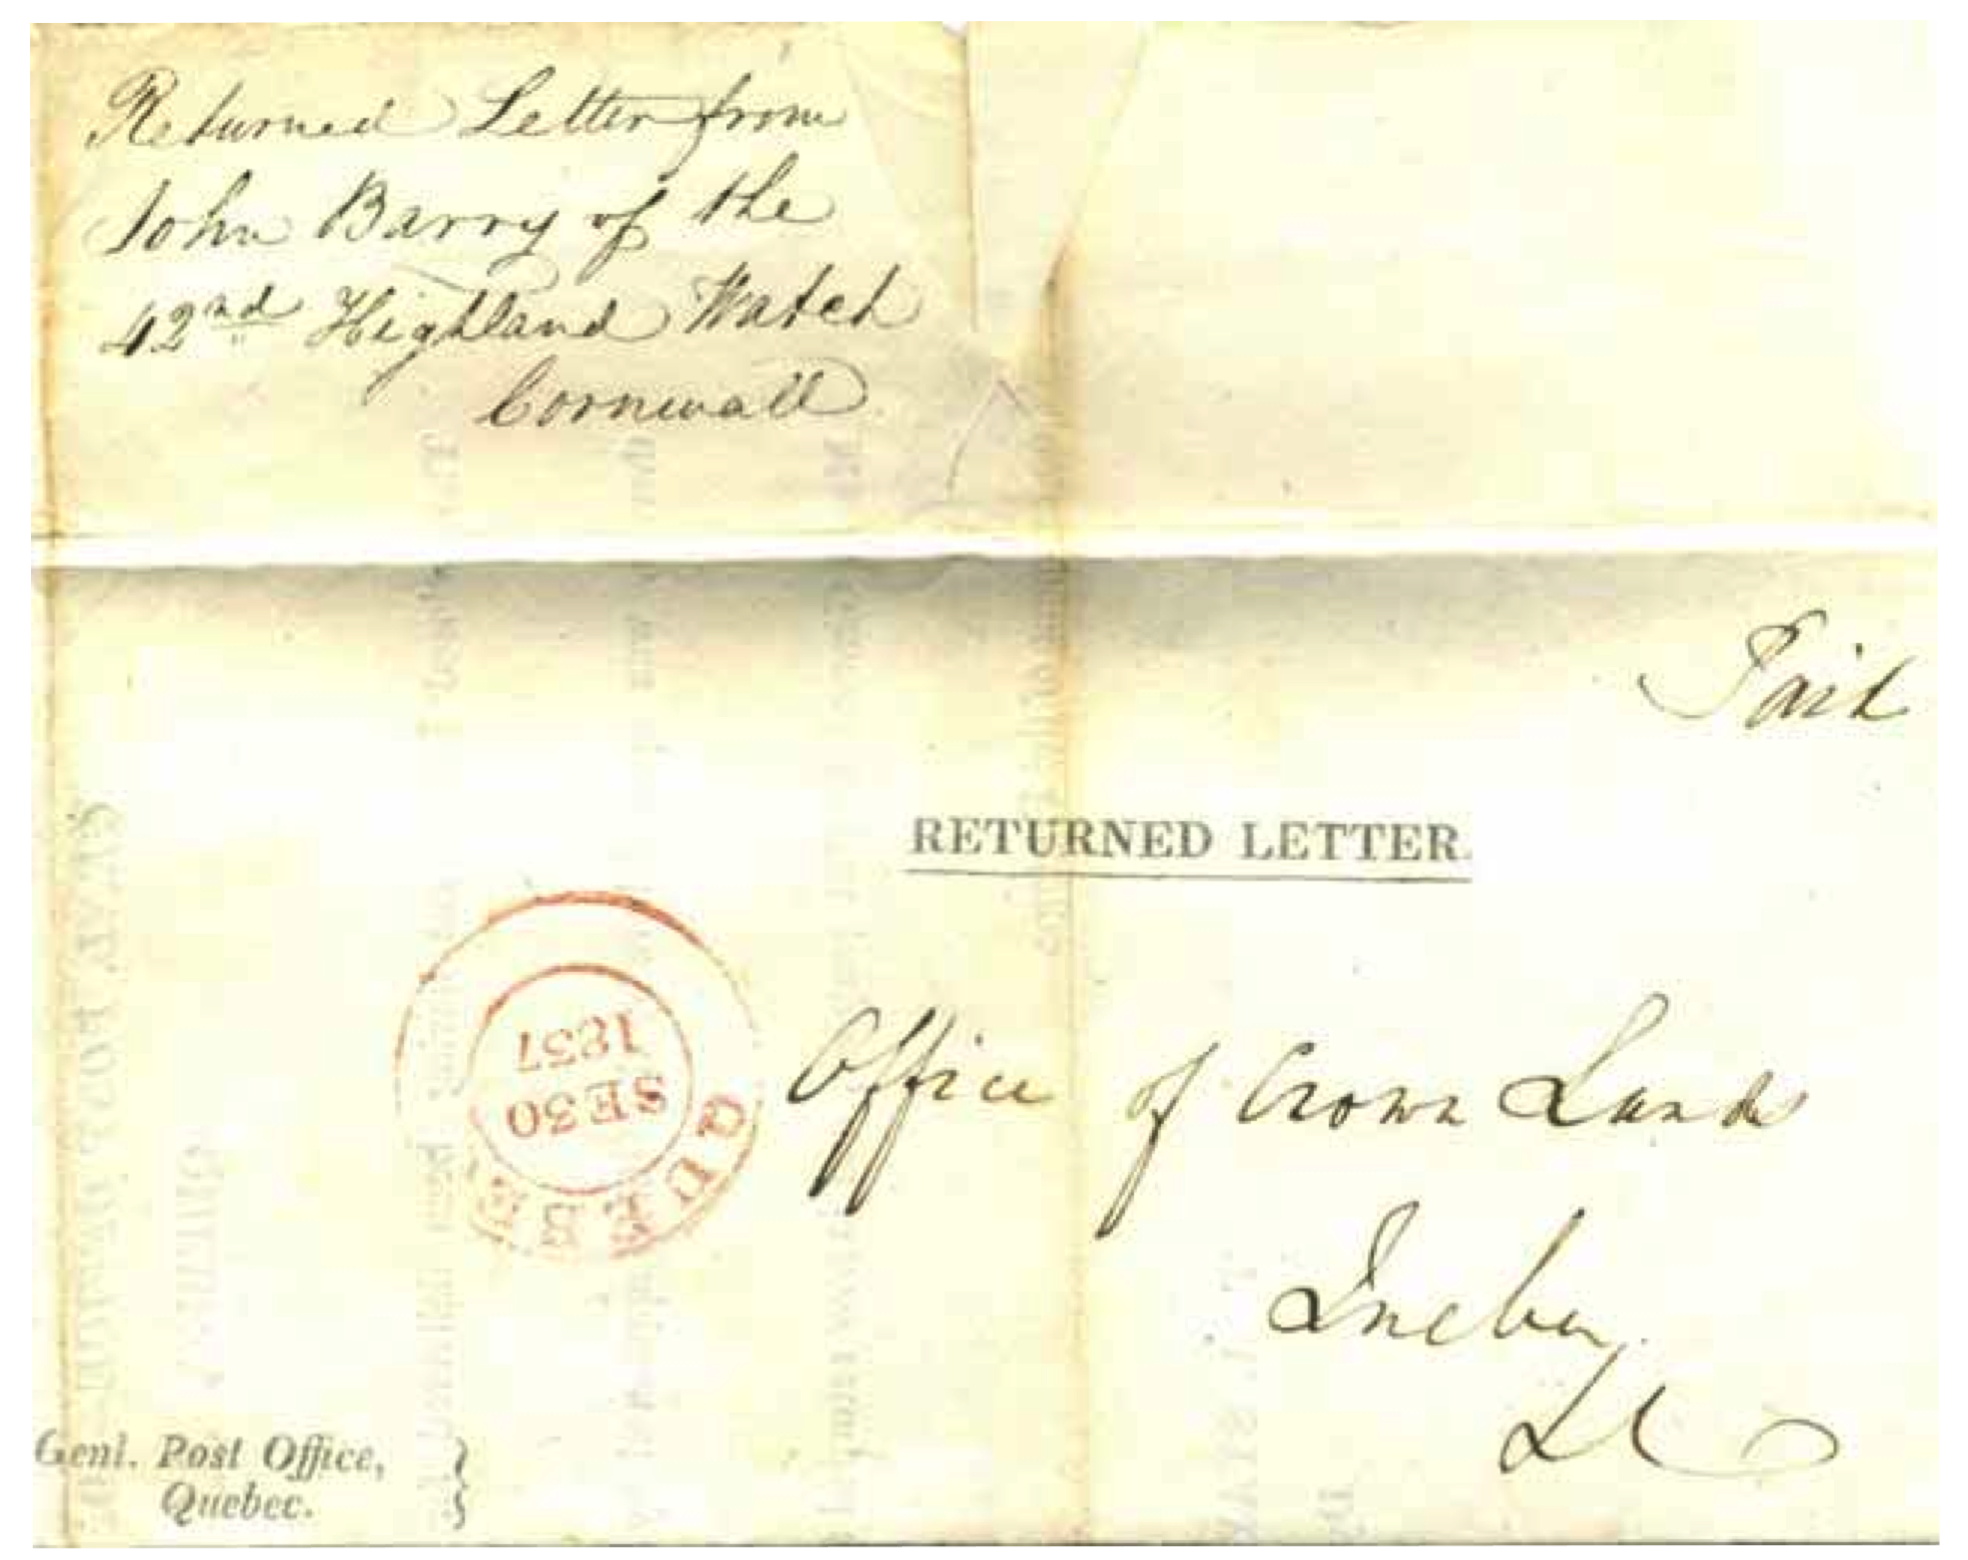 Returned Letter from
John Barry of the
42nd Highland Watch
Cornwall
Paid
RETURNED LETTER.
QUEBE
SE 30
1837
Office of Crown Lands
Quebec
LC
Genl. Post Office,
Quebec.